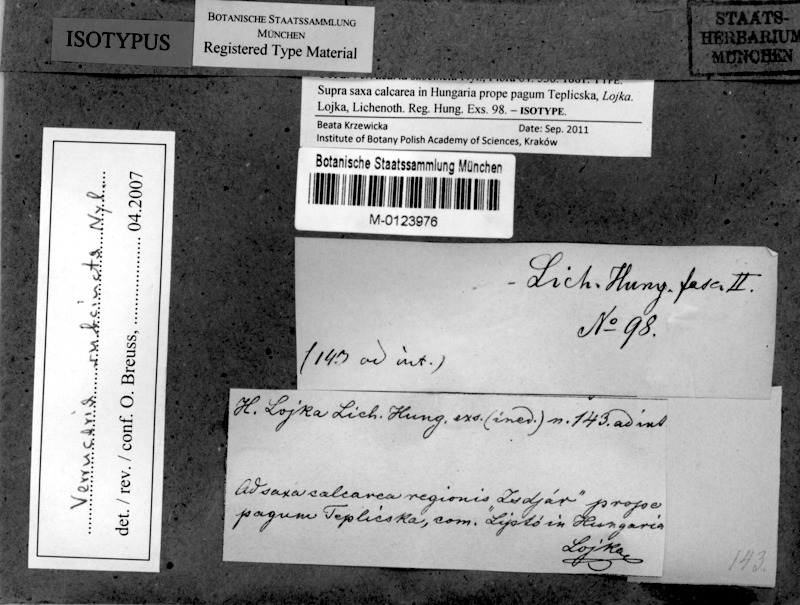 ISOTYPUS
BOTANISCHE STAATSSAMMLUNG
MÜNCHEN
Registered Type Material
STAATS-
HERBARIUM
MÜNCHEN
Supra saxa calcarea in Hungaria prope pagum Teplicska, Lojka.
Lojka, Lichenoth. Reg. Hung. Exs. 98. – ISOTYPE.
Beata Krzewicka Date: Sep. 2011
Institute of Botany Polish Academy of Sciences, Kraków
Botanische Staatssammlung München
M-0123976
Verrucaria subcincta Nyl.
det. / rev. / conf. O. Breuss, 04.2007
- Lich. Hung. fasc. II.
No 98.
(143 ad int.)
H. Lojka Lich. Hung. exs. (ined.) n. 143. ad int
Ad saxa calcarea regionis Zsdjár" prope
pagum Teplicska, com. "Liptó in Hungaria
Lojka
143.